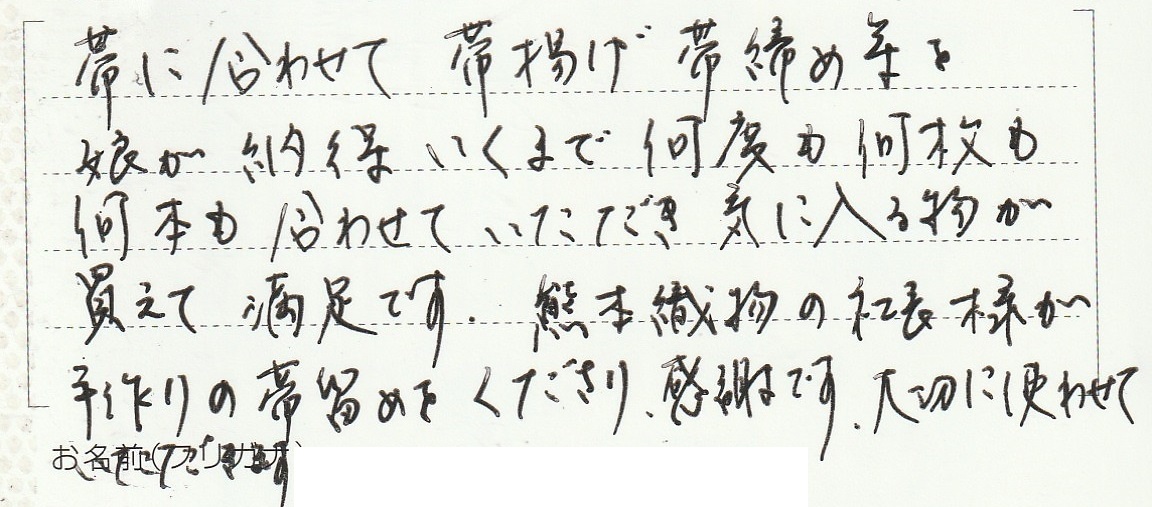 帯に合わせて 帯揚げ 帯締め等を
娘が 納得 いくまで 何度も 何枚も
何本も 合わせて いただき 気に入る物が
買えて 満足です. 熊本織物の社長様が
手作りの帯留めを くださり、感謝です、大切に使わせて
いただきます
お名前(フリガナ)